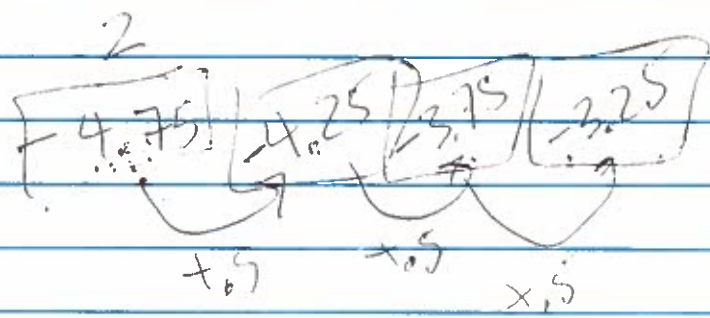 2
-4.75 -4.25 -3.75 -3.25
+.5 +.5 +.5